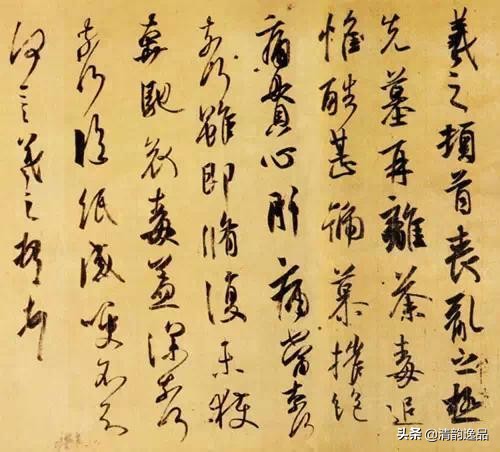 羲之頓首喪亂之極
先墓再離荼毒追
惟酷甚號慕摧絕
痛貫心肝痛當奈何
奈何雖即脩復未獲
奔馳哀毒益深奈何
奈何臨紙感哽不知
何言羲之頓首頓首
头条 @清韵逸品